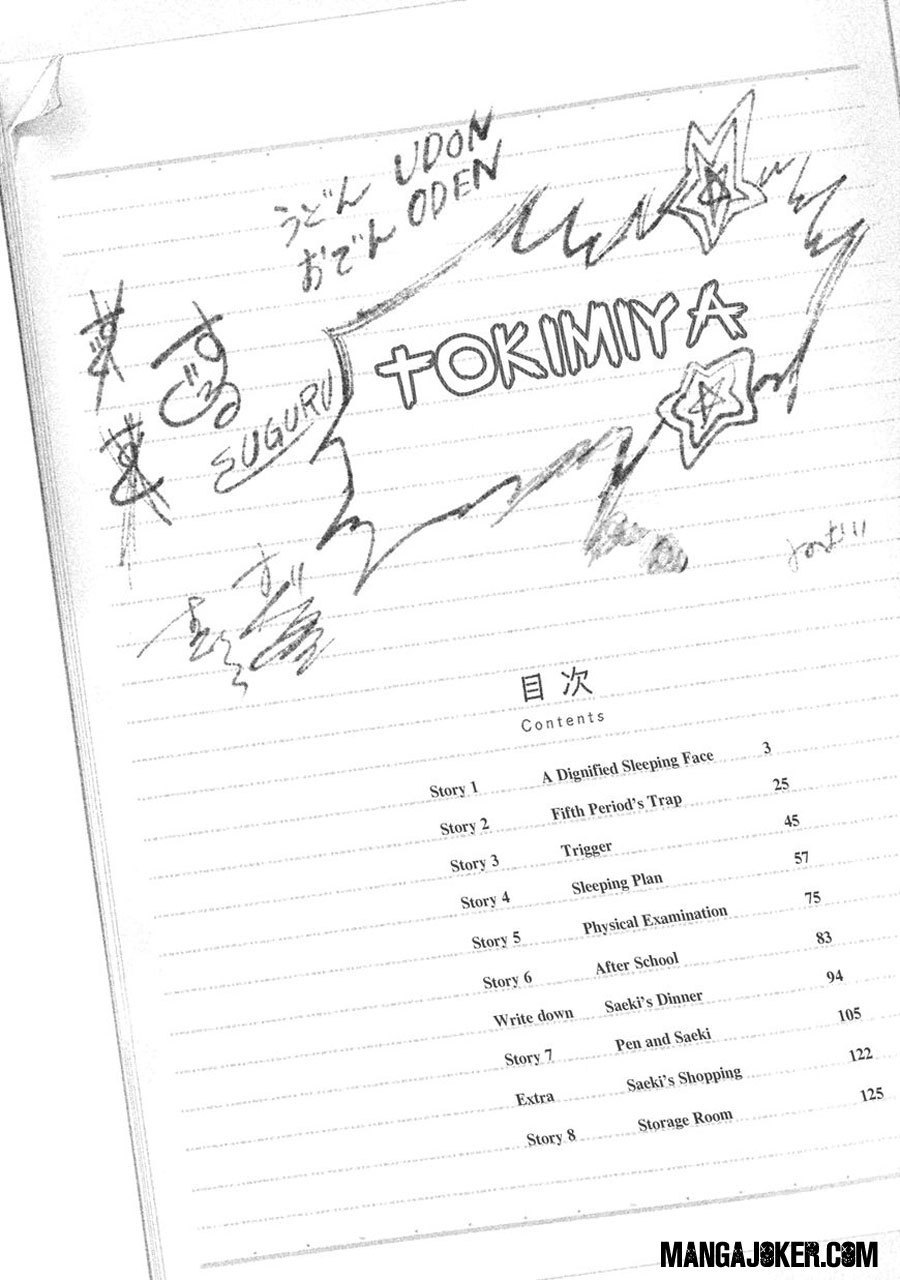 うどん UDON
おでん ODEN
TOKIMIYA
すぐる
SUGURU
ねむい
目次
Contents
Story 1 A Dignified Sleeping Face 3
Story 2 Fifth Period's Trap 25
Story 3 Trigger 45
Story 4 Sleeping Plan 57
Story 5 Physical Examination 75
Story 6 After School 83
Write down Saeki's Dinner 94
Story 7 Pen and Saeki 105
Extra Saeki's Shopping 122
Story 8 Storage Room 125
MANGAJOKER.COM